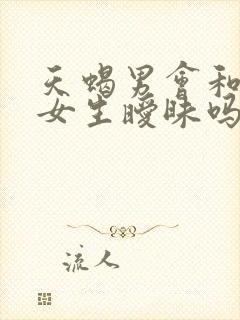 天蝎男会和
女生暧昧吗
流人